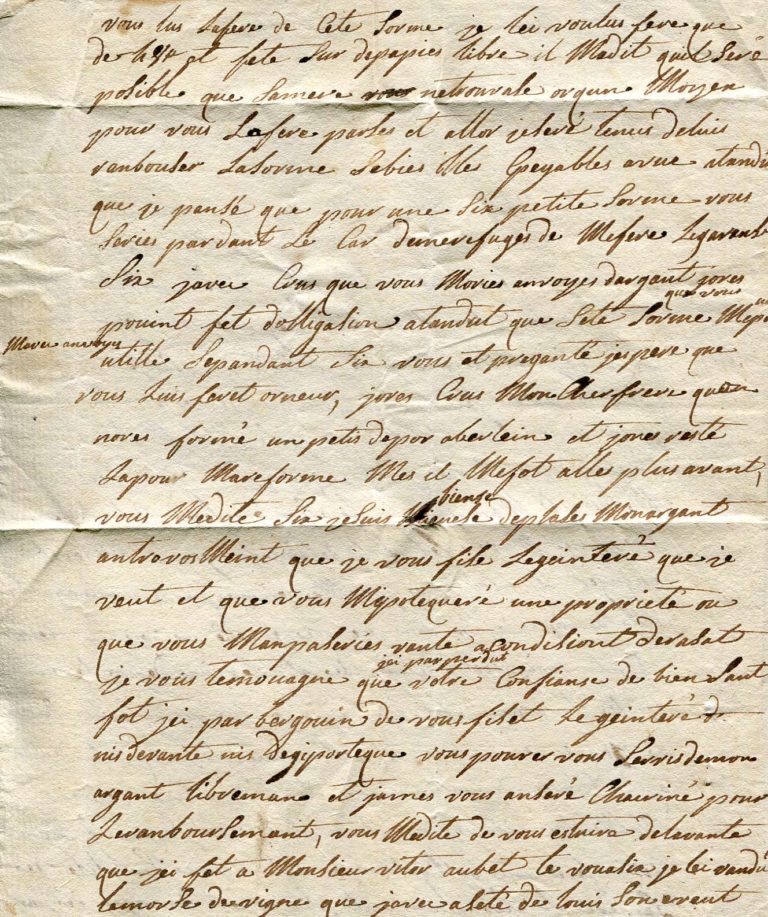 vous lus lafere de Cete Sorme je lei voulus fere que
de et fete sur depapies libre il Madit quil Seré
posible que Samere netrouvale orqun Moyen
pour vous Lafere parles et allor jeseré tenus deluis
ranbouser Lasorme Sebies ille Epeyables avue atandu
que je pansé que pour une Six petite Sorme vous
Series pardant Le Car demerefuges de Mefere Legarand
Six javes Crus que vous Mories anvoyes dargant jores
pouint fet dobligasion atandut que Sete Sorme que vous
Mavies anvoyes
utille Sepandant Six vous et pregante jespere que
vous Luis feret orneur, jores Crus Mon Cher frere quan
nores formé un petis depor aberlein et jores resté
Lapour Mareforme Mes il Mefot alle plus avant,
vous Medite Six jesuis bienese deplases Monargant
antrevos Meint que je vous fise Legeinteré que je
veut et que vous Mipotequeré une proprieté ou
que vous Manpaseries vante acondisiont derasat
je vous temouagne que jei par perdut votre Confianse de bien Sant
fot jei par besgouin de vous fiset Le geinteré
nis devante nis degiporteque vous pourer vous Servis demon
argant libreman et james vous anseré Chagriné pour
Leranboursemant, vous Medite de vous esrire delavante
que jei fet a Monsieur vitor aubet le voualix je lei vandu
lemorse devigne que javes aseté de louis Son